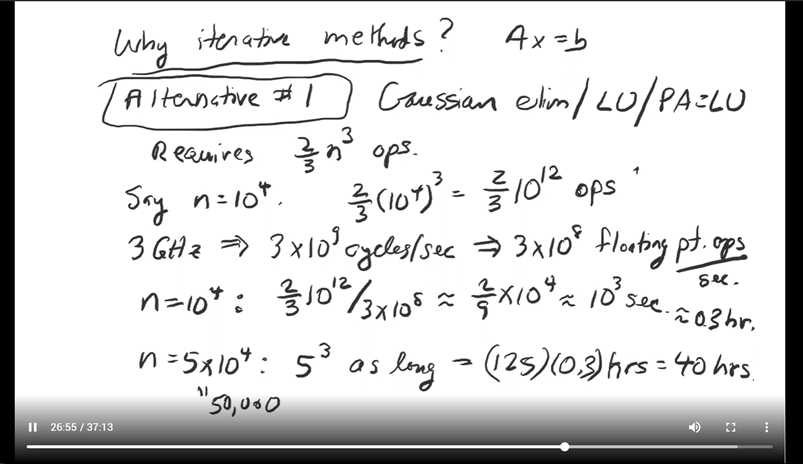 Why iterative methods? Ax=b
Alternative #1 Gaussian elim/LU/PA=LU
Requires 2/3 n³ ops.
Say n=10⁴. 2/3(10⁴)³ = 2/3 10¹² ops
3 GHz ⇒ 3×10⁹ cycles/sec ⇒ 3×10⁸ floating pt. ops/sec.
n=10⁴: 2/3 10¹²/3×10⁸ ≈ 2/9×10⁴ ≈ 10³ sec. ≈ 0.3 hr.
n=5×10⁴: 5³ as long = (125)(0.3) hrs = 40 hrs.
" 50,000
26:55 / 37:13